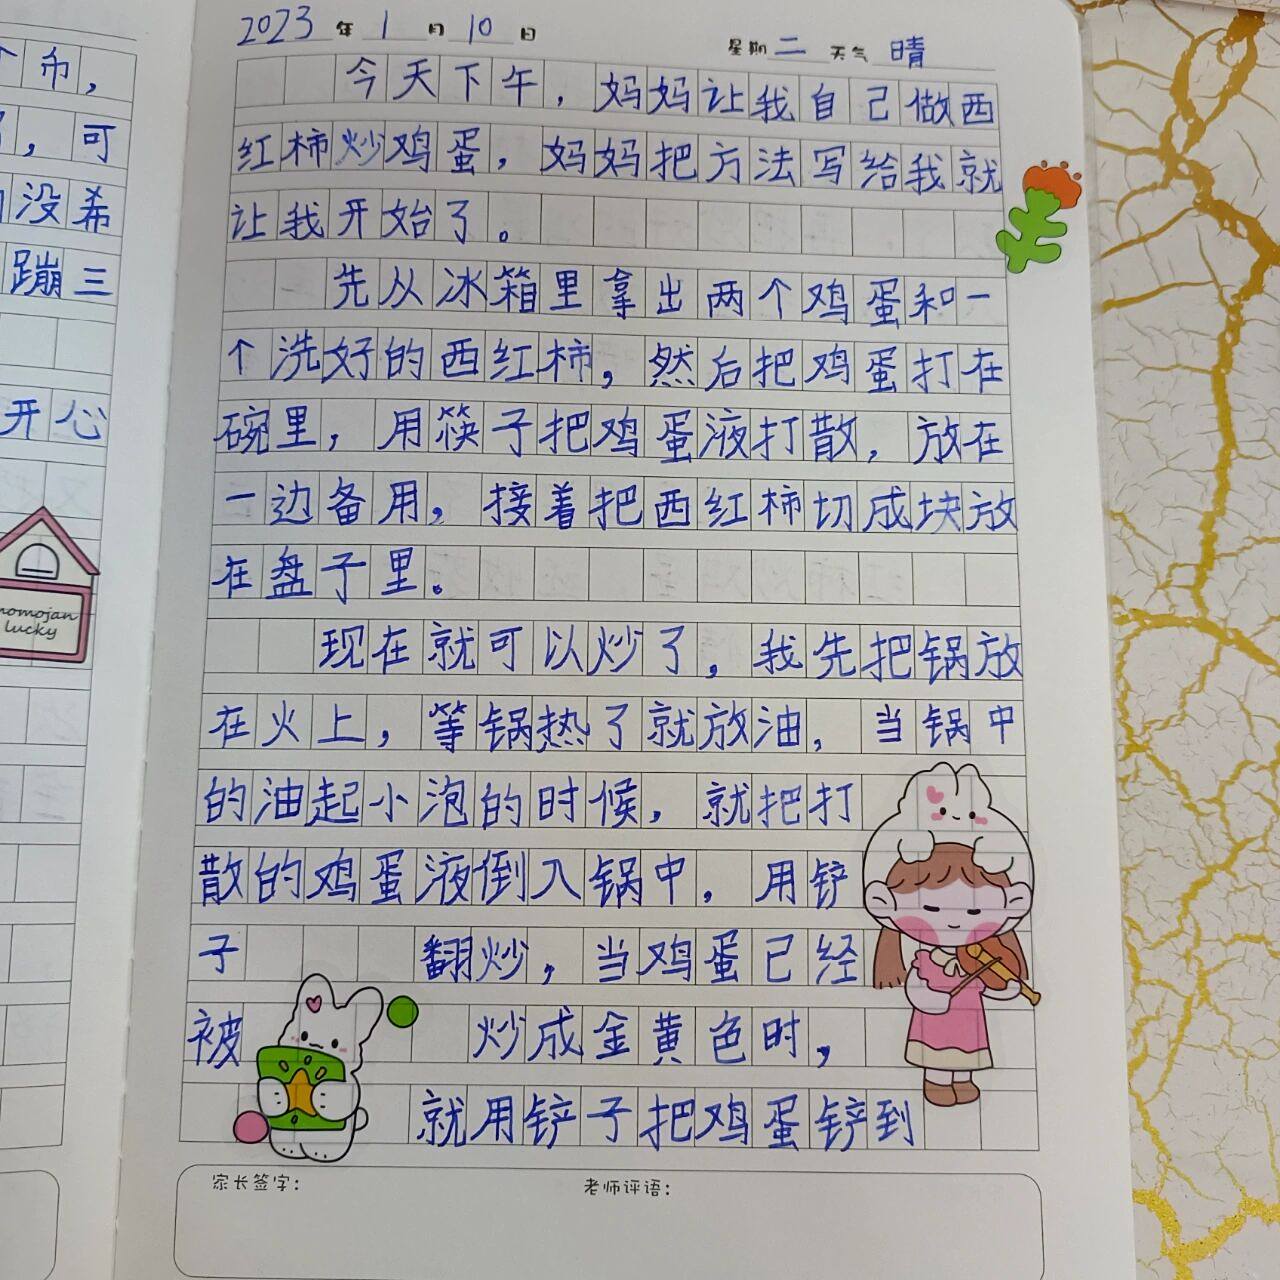 个布，
，可
没希
蹦三
开心
momojan
lucky
2023年1月10日 星期二 天气 晴
今天下午，妈妈让我自己做西
红柿炒鸡蛋，妈妈把方法写给我就
让我开始了。
先从冰箱里拿出两个鸡蛋和一
个洗好的西红柿，然后把鸡蛋打在
碗里，用筷子把鸡蛋液打散，放在
一边备用，接着把西红柿切成块放
在盘子里。
现在就可以炒了，我先把锅放
在火上，等锅热了就放油，当锅中
的油起小泡的时候，就把打
散的鸡蛋液倒入锅中，用铲
子翻炒，当鸡蛋已经
被炒成金黄色时，
就用铲子把鸡蛋铲到
家长签字： 老师评语：